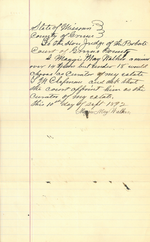 State of Missouri }
County of Greene }
To the Hon Judge of the Probate
Court of Greene County
I Maggie May Walker a minor
over 14 years but under 18 would
choose as curator of my estate
J. M. Chapman and ask that
the court appoint him as the
curator of my estate.
This 10th day of Sept 1892
Maggie May Walker